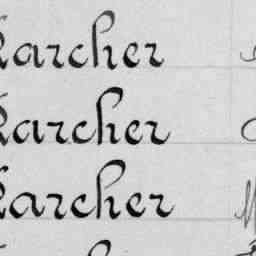 Karcher
Karcher
Karcher